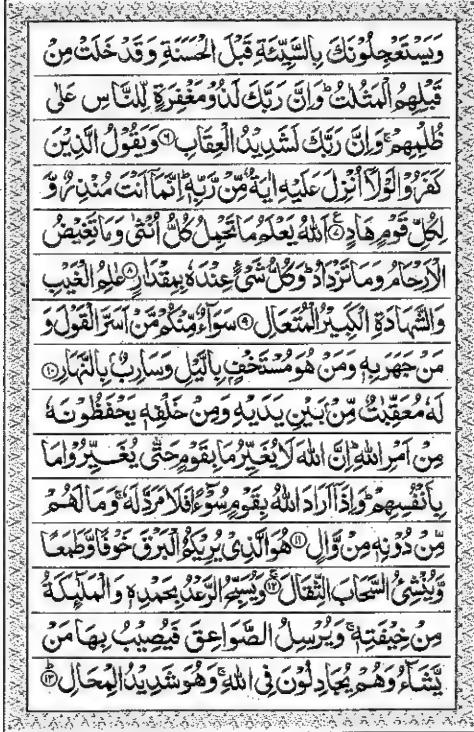 وَيَسْتَعْجِلُوْنَكَ بِالسَّيِّئَةِ قَبْلَ الْحَسَنَةِ وَقَدْ خَلَتْ مِنْ
قَبْلِهِمُ الْمَثُلٰتُ ؕ وَاِنَّ رَبَّكَ لَذُوْ مَغْفِرَةٍ لِّلنَّاسِ عَلٰى
ظُلْمِهِمْ ۚ وَاِنَّ رَبَّكَ لَشَدِيْدُ الْعِقَابِ ۝۶ وَيَقُوْلُ الَّذِيْنَ
كَفَرُوْا لَوْلَاۤ اُنْزِلَ عَلَيْهِ اٰيَةٌ مِّنْ رَّبِّهٖ ؕ اِنَّمَاۤ اَنْتَ مُنْذِرٌ وَّ
لِكُلِّ قَوْمٍ هَادٍ ۝۷ اَللّٰهُ يَعْلَمُ مَا تَحْمِلُ كُلُّ اُنْثٰى وَمَا تَغِيْضُ
الْاَرْحَامُ وَمَا تَزْدَادُ ؕ وَكُلُّ شَيْءٍ عِنْدَهٗ بِمِقْدَارٍ ۝۸ عٰلِمُ الْغَيْبِ
وَالشَّهَادَةِ الْكَبِيْرُ الْمُتَعَالِ ۝۹ سَوَآءٌ مِّنْكُمْ مَّنْ اَسَرَّ الْقَوْلَ وَ
مَنْ جَهَرَ بِهٖ وَمَنْ هُوَ مُسْتَخْفٍۭ بِالَّيْلِ وَسَارِبٌۢ بِالنَّهَارِ ۝۱۰
لَهٗ مُعَقِّبٰتٌ مِّنْۢ بَيْنِ يَدَيْهِ وَمِنْ خَلْفِهٖ يَحْفَظُوْنَهٗ
مِنْ اَمْرِ اللّٰهِ ؕ اِنَّ اللّٰهَ لَا يُغَيِّرُ مَا بِقَوْمٍ حَتّٰى يُغَيِّرُوْا مَا
بِاَنْفُسِهِمْ ؕ وَاِذَاۤ اَرَادَ اللّٰهُ بِقَوْمٍ سُوْٓءًا فَلَا مَرَدَّ لَهٗ ۚ وَمَا لَهُمْ
مِّنْ دُوْنِهٖ مِنْ وَّالٍ ۝۱۱ هُوَ الَّذِيْ يُرِيْكُمُ الْبَرْقَ خَوْفًا وَّطَمَعًا
وَّيُنْشِئُ السَّحَابَ الثِّقَالَ ۝۱۲ وَيُسَبِّحُ الرَّعْدُ بِحَمْدِهٖ وَالْمَلٰٓئِكَةُ
مِنْ خِيْفَتِهٖ ۚ وَيُرْسِلُ الصَّوَاعِقَ فَيُصِيْبُ بِهَا مَنْ
يَّشَآءُ وَهُمْ يُجَادِلُوْنَ فِى اللّٰهِ ۚ وَهُوَ شَدِيْدُ الْمِحَالِ ۝۱۳